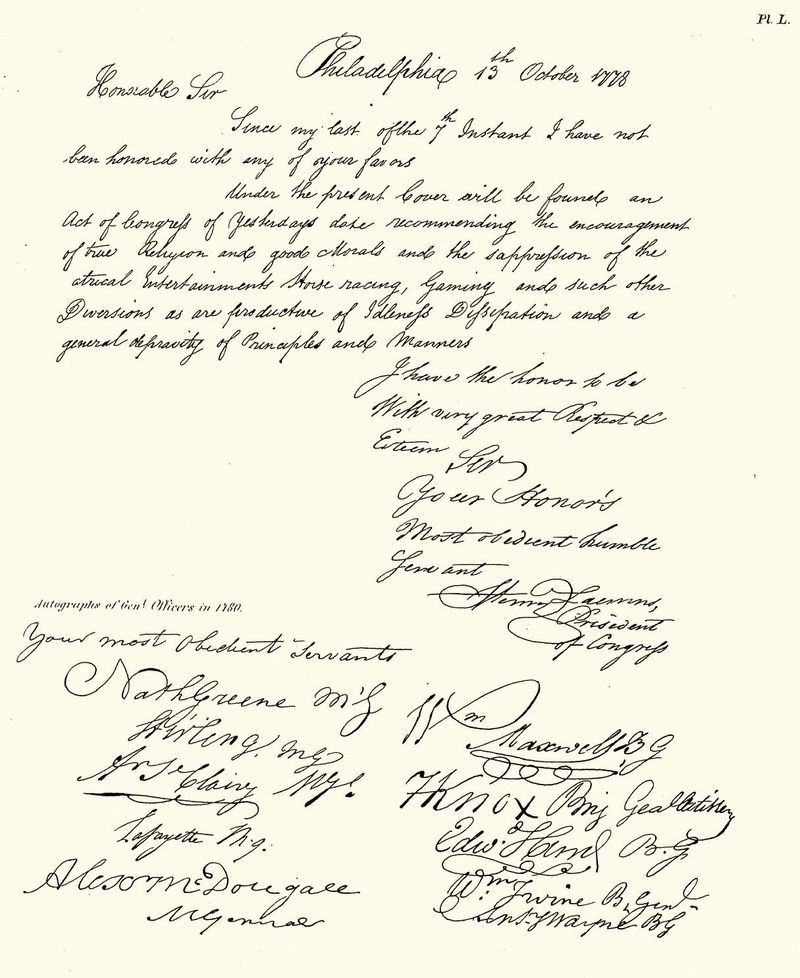 Pl. L.
Philadelphia 13th October 1778
Honorable Sir
Since my last of the 7th Instant I have not
been honored with any of your favors
Under the present Cover will be found an
Act of Congress of Yesterdays date recommending the encouragement
of true Religion and good Morals and the suppression of the
atrical Entertainments Horse racing, Gaming and such other
Diversions as are productive of Idleness Dissipation and a
general depravity of Principles and Manners
I have the honor to be
With very great Respect &
Esteem
Sir
Your Honor's
Most obedient humble
Servant
Henry Laurens,
President
of Congress
Autographs of Genl. Officers in 1780.
Your most Obedient Servants
Nath Greene M'G
Stirling, MG
Ar St Clair, MGl.
Lafayette M.g.
Alexr McDougall
MGeneral
Wm Maxwell, BG
HKnox Brig Genl Artillery
Edwd. Hand B.G
Wm. Irvine B, Genl
Anty Wayne BG